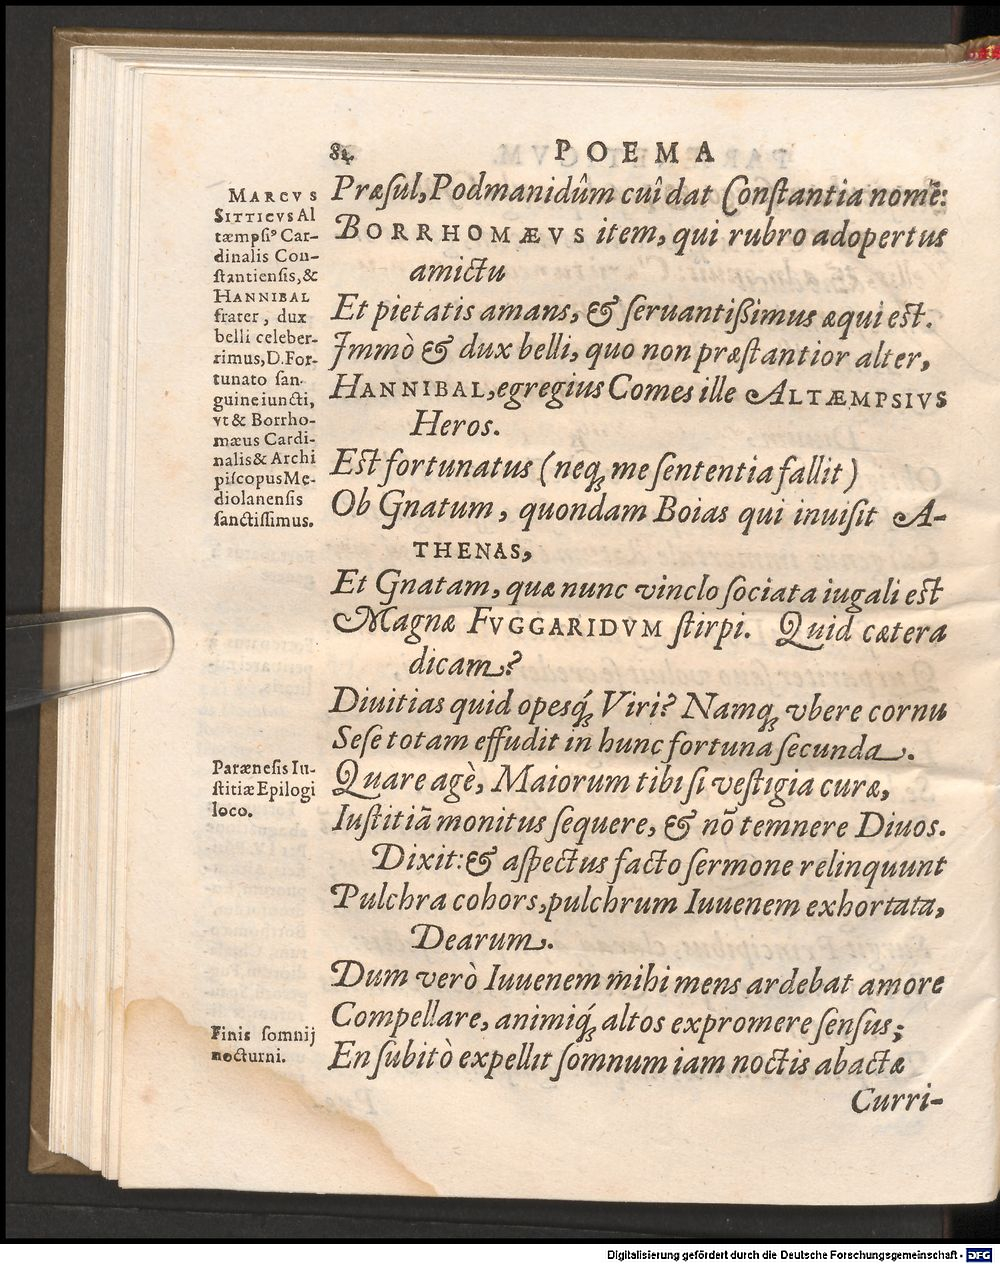 84 POEMA
Præſul, Podmanidûm cuî dat Conſtantia nomē:
BORRHOMÆVS item, qui rubro adopertus
amictu
Et pietatis amans, & ſeruantißimus æqui est.
Immò & dux belli, quo non præſtantior alter,
HANNIBAL, egregius Comes ille ALTÆMPSIVS
Heros.
Est fortunatus (neq́; me ſententia fallit)
Ob Gnatum, quondam Boias qui inuiſit A-
THENAS,
Et Gnatam, quæ nunc vinclo ſociata iugali est
Magnæ FVGGARIDVM ſtirpi. Quid cætera
dicam?
Diuitias quid opesq́; Viri? Namq; vbere cornu
Seſe totam effudit in hunc fortuna ſecunda.
Quare agè, Maiorum tibi ſi veſtigia curæ,
Iuſtitiā monitus ſequere, & nō temnere Diuos.
Dixit: & aſpectus facto ſermone relinquunt
Pulchra cohors, pulchrum Iuuenem exhortata,
Dearum.
Dum verò Iuuenem mihi mens ardebat amore
Compellare, animiq́; altos expromere ſenſus;
En ſubitò expellit ſomnum iam noctis abactæ
Curri-
MARCVS
SITTICVS Al
tæmpſiꝰ Car-
dinalis Con-
ſtantienſis, &
HANNIBAL
frater, dux
belli celeber-
rimus, D. For-
tunato ſan-
guine iuncti,
vt & Borrho-
mæus Cardi-
nalis & Archi
piſcopus Me-
diolanenſis
ſanctiſſimus.
Parænesis Iu-
ſtitiæ Epilogi
loco.
Finis ſomnij
nocturni.
Digitalisierung gefördert durch die Deutsche Forschungsgemeinschaft - DFG